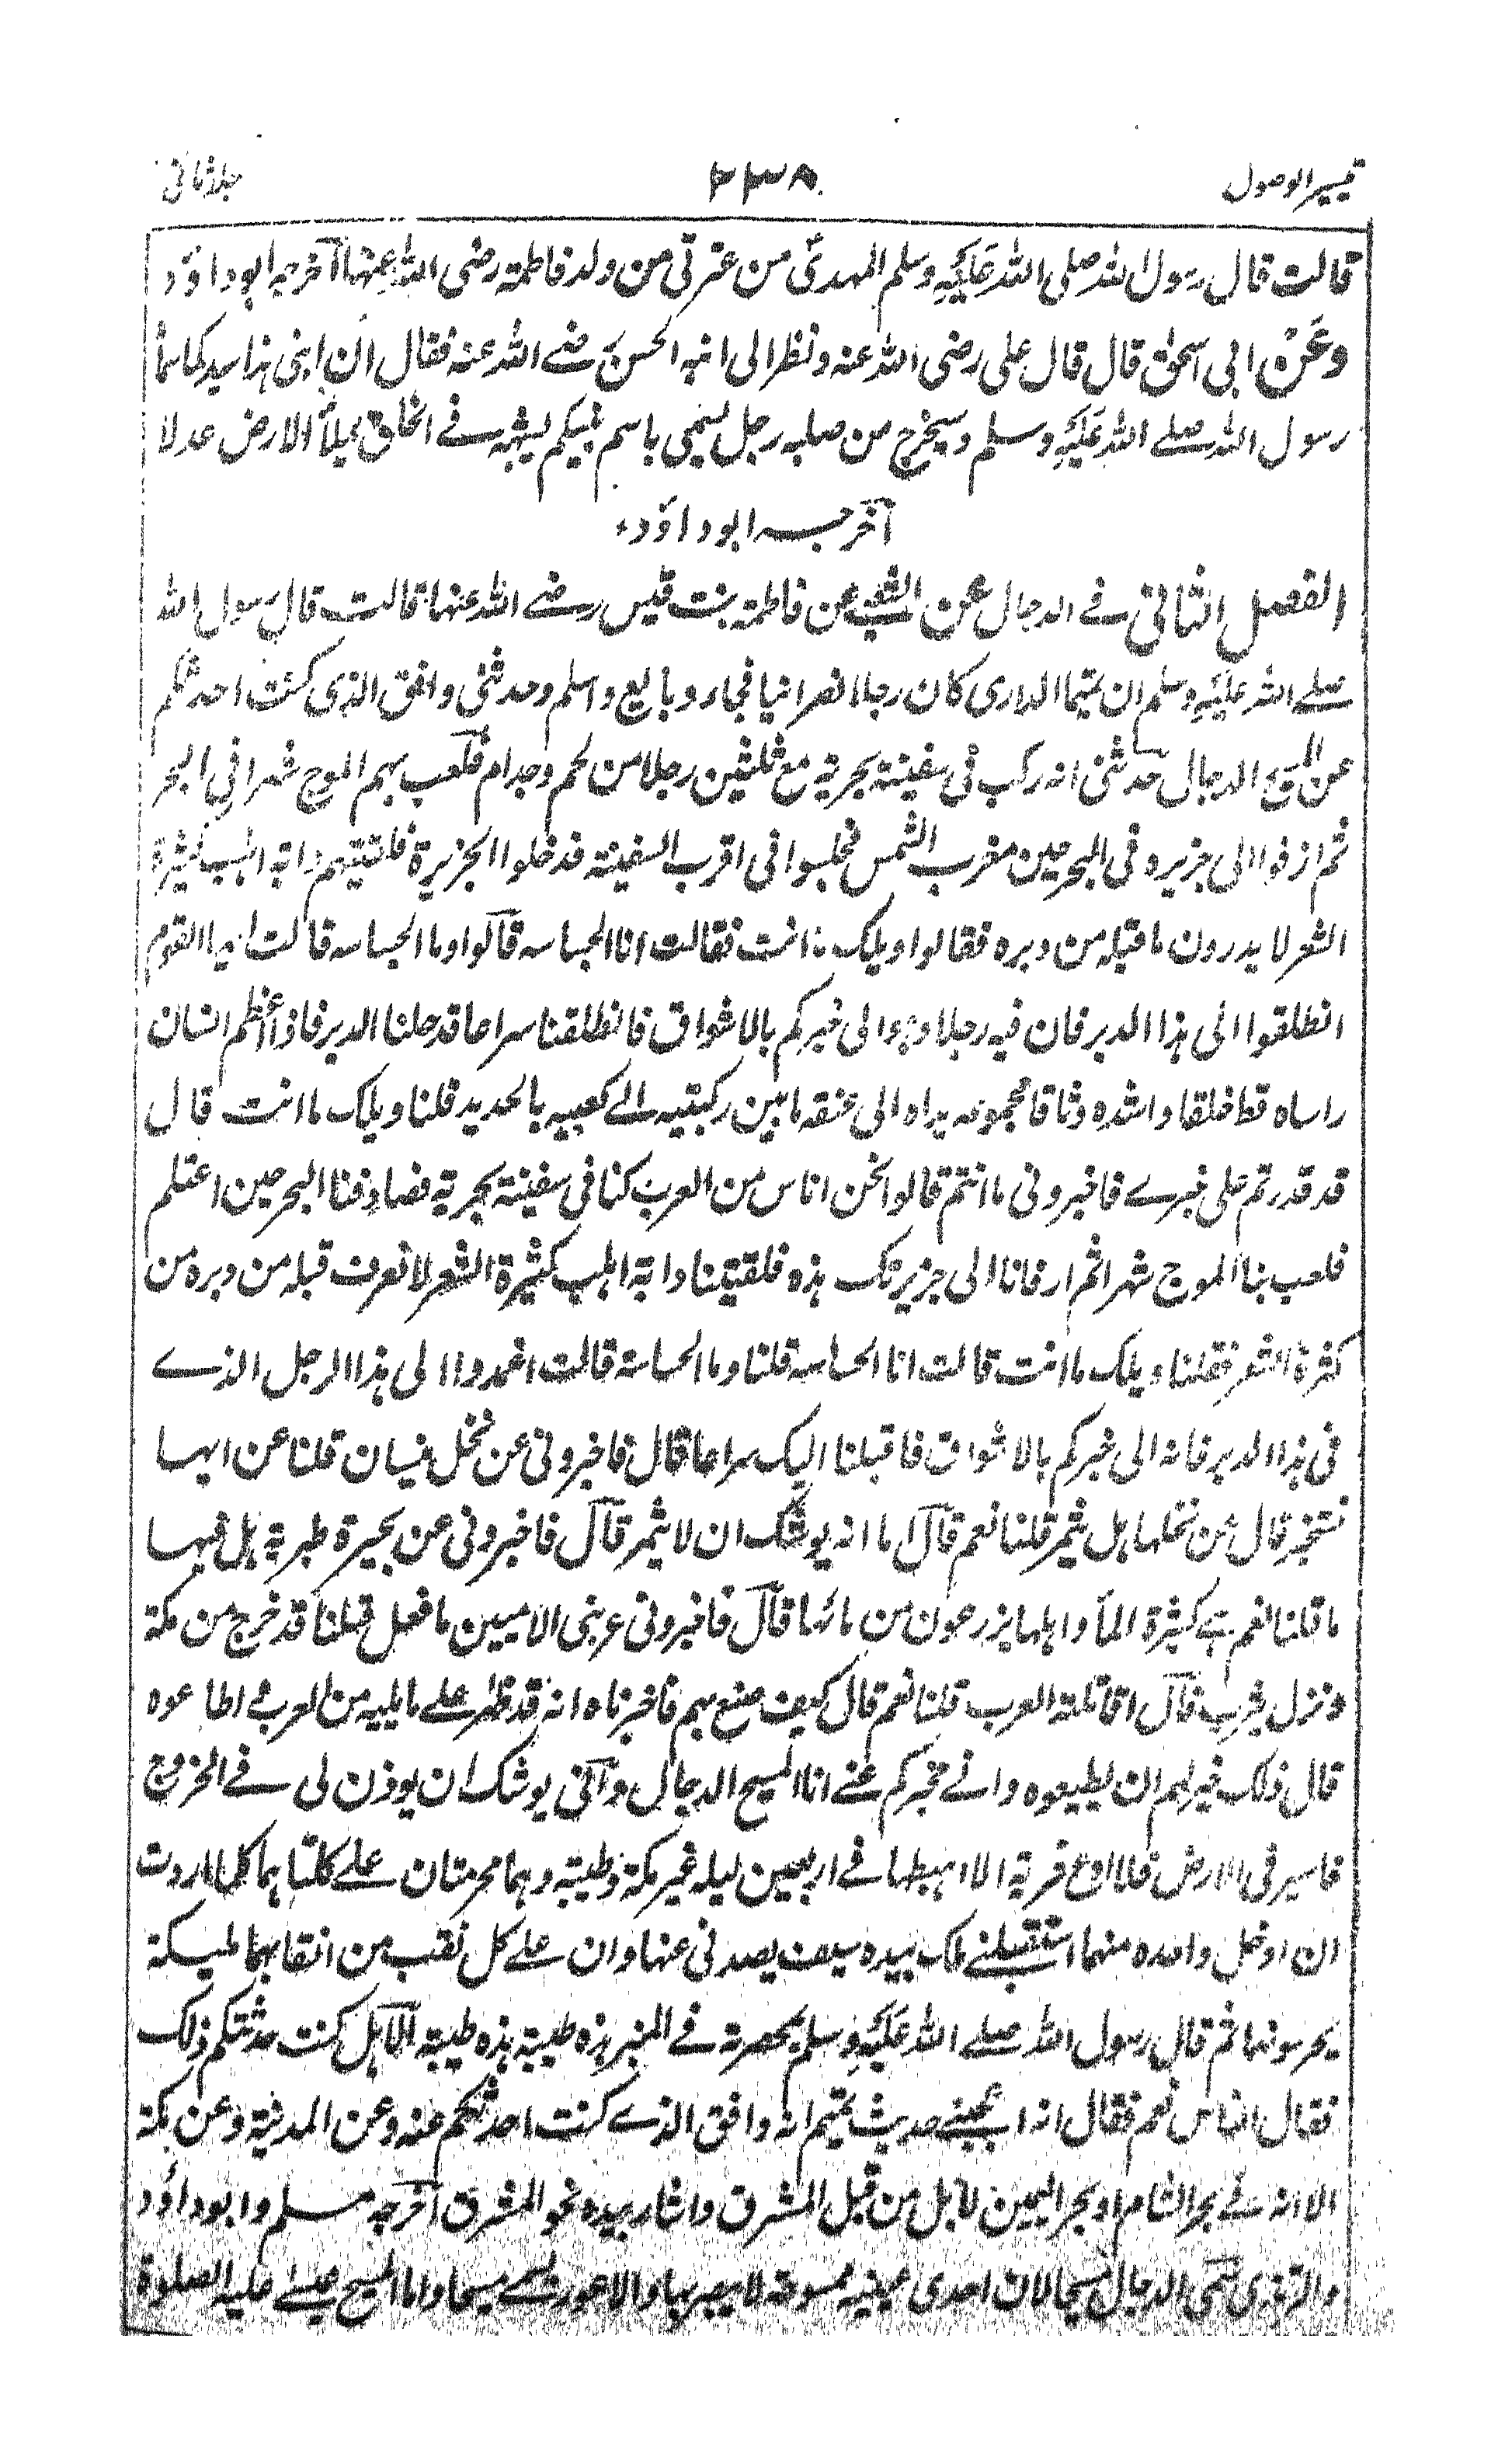 تیسیر الوصول
۲۳۸
جلد ثانی
قالت قال رسول الله صلی الله علیہ وسلم المہدی من عترتی من ولد فاطمۃ رضی الله عنہا آخرجہ ابو داؤد
وعن ابی اسحق قال قال علی رضی الله عنہ ونظر الی ابنہ الحسن رضے الله عنہ فقال ان ابنی ہذا سید کما سما
رسول الله صلے الله علیہ وسلم وسیخرج من صلبہ رجل یسمی باسم نبیکم یشبہہ فے الخلق یملأ الارض عدلا
آخرجہ ابو داؤد
الفصل الثانی فے الدجال عن الشعبے عن فاطمۃ بنت قیس رضے الله عنہا قالت قال رسول الله
صلے الله علیہ وسلم ان تمیما الداری کان رجلا نصرانیا فجاء وبایع واسلم وحدثنی وافق الذی کنت احدثکم
عن المسیح الدجال حدثنی انہ رکب فی سفینۃ بحریۃ مع ثلثین رجلا من لخم وجذام فلعب بہم الموج شہرا فی البحر
ثم ارفوا الی جزیرہ فی البحر حین مغرب الشمس فجلسوا فی اقرب السفینۃ فدخلوا الجزیرۃ فلقیتہم دابۃ اہلب کثیرۃ
الشعر لا یدرون ما قبلہ من دبرہ فقالوا ویلک ما انت فقالت انا الجساسہ قالوا وما الجساسہ قالت ایہا القوم
انطلقوا الی ہذا الدیر فان فیہ رجلا وہو الی خبرکم بالاشواق فانطلقنا سراعا قدخلنا الدیر فاذا اعظم انسان
راساہ قط خلقا واشدہ وثاقا مجموعہ یداہ الی عنقہ ما بین رکبتیہ الے کعبیہ بالحدید قلنا ویلک ما انت قال
قد قدرتم علی خبرے فاخبرونی ما انتم قالوا نحن اناس من العرب کنا فی سفینۃ بحریۃ فصادفنا البحر حین اغتلم
فلعب بنا الموج شہرا ثم ارفانا الی جزیرتک ہذہ فلقیتنا دابۃ اہلب کثیرۃ الشعر لا نعرف قبلہ من دبرہ من
کثرۃ الشعر فقلنا ویلک ما انت قالت انا الجساسہ قلنا وما الجساسۃ قالت اعمدوا الی ہذا الرجل الذے
فی ہذا الدیر فانہ الی خبرکم بالاشواق فاقبلنا الیک سراعا قال فاخبرونی عن نخل بیسان قلنا عن ایہا
نستخبر قال عن نخلہا ہل یثمر قلنا نعم قال اما انہ یوشک ان لا یثمر قال فاخبرونی عن بحیرۃ طبریۃ ہل فیہا
ما قلنا نعم ہے کثیرۃ الماء واہلہا یزرعون من مائہا قال فاخبرونی عن نبی الامیین ما فعل قلنا قد خرج من مکۃ
ونزل یثرب قال اقاتلتہ العرب قلنا نعم قال کیف صنع بہم فاخبرناہ انہ قد ظہر علے ما یلیہ من العرب واطاعوہ
قال ذلک خیر لہم ان یطیعوہ وانے مخبرکم عنے انا المسیح الدجال وانی یوشک ان یوذن لی فے الخروج
فاسیر فی الارض فلا ادع قریۃ الا اہبطہا فے اربعین لیلہ غیر مکۃ وطیبۃ وہما محرمتان علے کلتاہما کلما اردت
ان ادخل واحدہ منہما استقبلنے ملک بیدہ سیف یصدنی عنہا وان علے کل نقب من انقابہما ملیکۃ
یحرسونہا ثم قال رسول الله صلے الله علیہ وسلم بمخصرتہ فے المنبر ہذہ طیبۃ ہذہ طیبۃ الا ہل کنت حدثتکم ذلک
فقال الناس نعم فقال انہ اعجبنے حدیث تمیم انہ وافق الذے کنت احدثکم عنہ وعن المدینۃ وعن مکۃ
الا انہ فے بحر الشام او بحر الیمن لا بل من قبل المشرق واشار بیدہ نحو المشرق آخرجہ مسلم وابو داؤد
والترمذی سمی الدجال مسیحا لان احدی عینیہ ممسوحۃ لا یبصر بہا والاعور یسمے مسیحا واما المسیح عیسے علیہ الصلوۃ